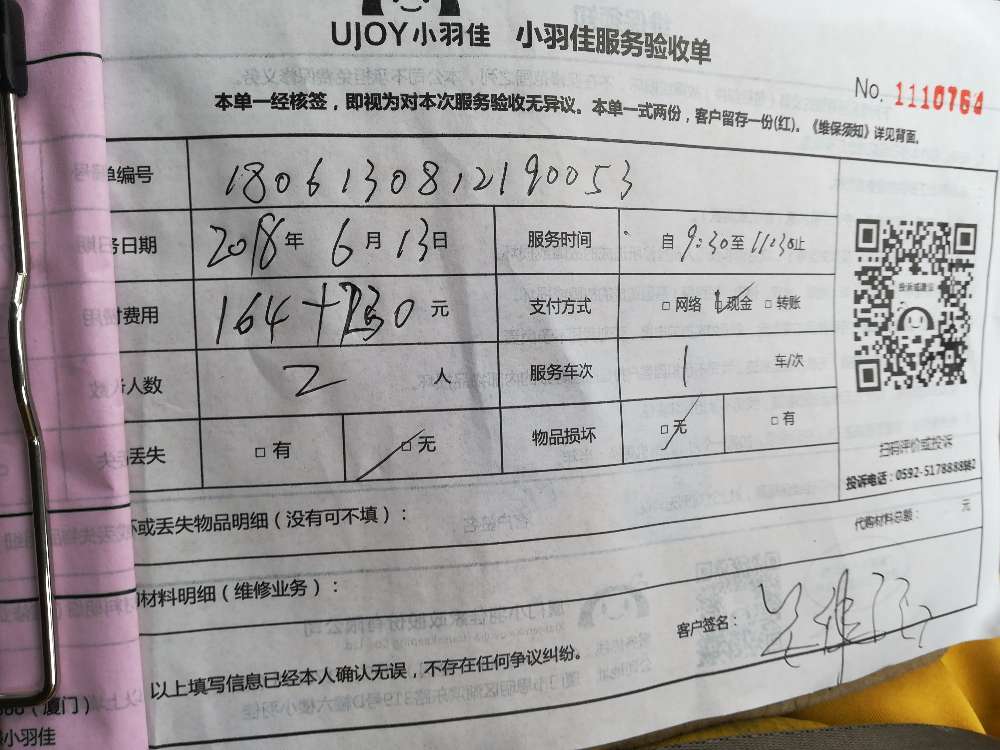 UJOY小羽佳 小羽佳服务验收单
No. 1110764
本单一经核签，即视为对本次服务验收无异议。本单一式两份，客户留存一份(红)。《维保须知》详见背面。
单编号 1806130812190053
务日期 2018年 6月 13日 服务时间 自 9:30至 11:30止
付费用 164+ 元 支付方式 □网络 □现金 □转账
人数 2 人 服务车次 1 车/次
丢失 □有 □无 物品损坏 □无 □有
投诉或建议
扫码评价或投诉
投诉电话：0592-5178888
坏或丢失物品明细（没有可不填）：
代购材料总额： 元
材料明细（维修业务）：
客户签名：
以上填写信息已经本人确认无误，不存在任何争议纠纷。
（厦门）
小羽佳